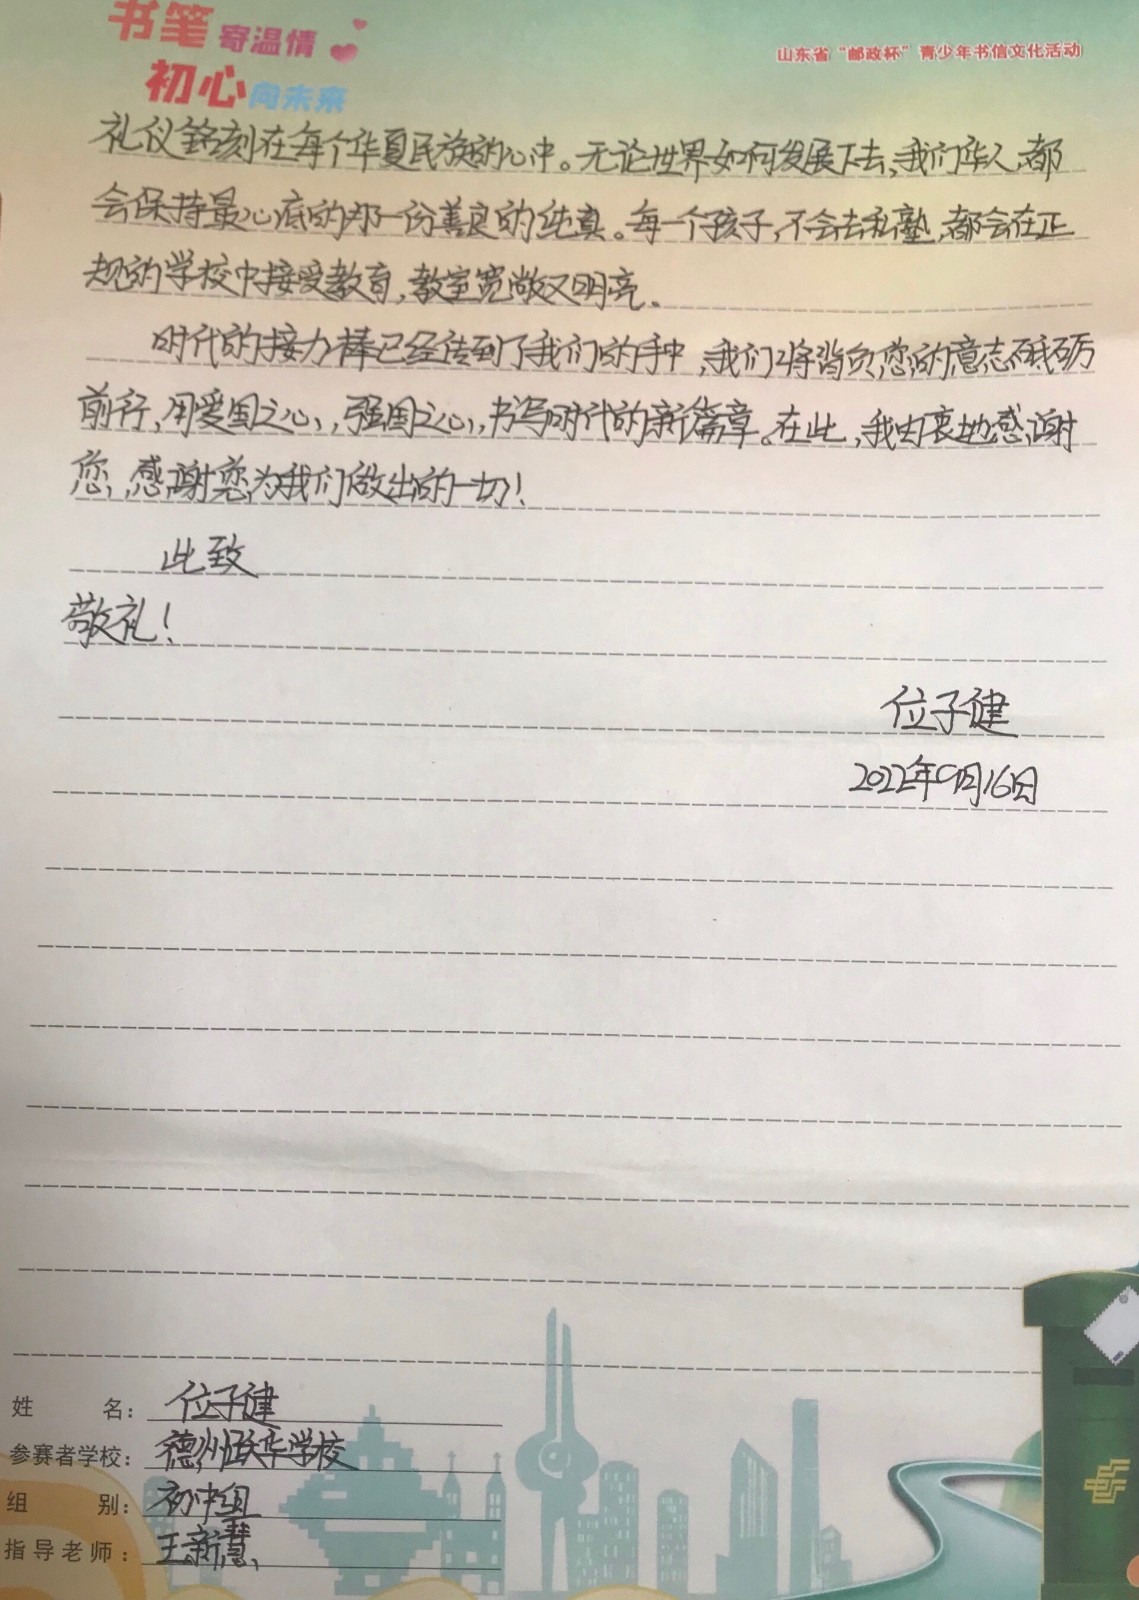 书笔寄温情
初心向未来
山东省“邮政杯”青少年书信文化活动
礼仪铭刻在每个华夏民族的心中。无论世界如何发展下去,我们华人都
会保持最心底的那一份善良的纯真。每一个孩子,不会去私塾,都会在正
规的学校中接受教育,教室宽敞又明亮。
时代的接力棒已经传到了我们的手中,我们将背负您的意志砥砺
前行,用爱国之心,强国之心,书写时代的新篇章。在此,我由衷地感谢
您,感谢您为我们做出的一切!
此致
敬礼!
位子健
2022年9月16日
姓名: 位子健
参赛者学校: 德州跃华学校
组别: 初中组
指导老师: 王新慧